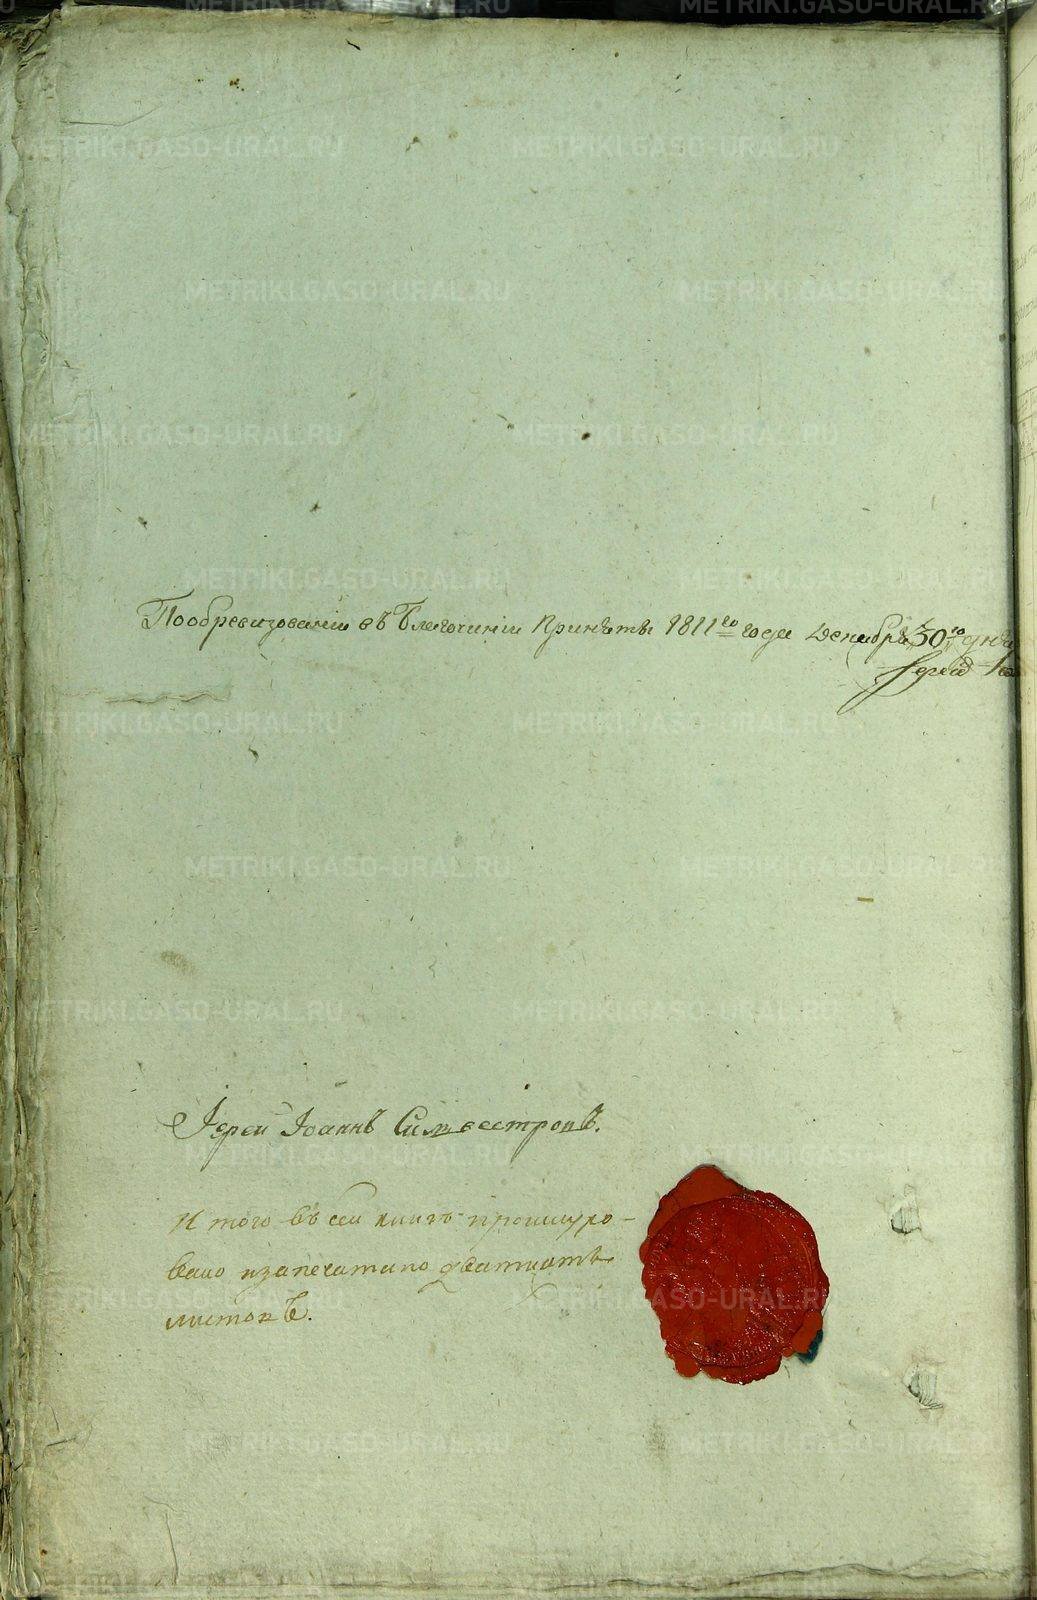 Пообревизованіи въ Благочиніи Принѣты 1811го года Декабря 30го дня
Іерей Іоаннъ Силвестровъ.
И того въ сеи книгѣ прошнуро-
вано изапечатано дватцать
листовъ.